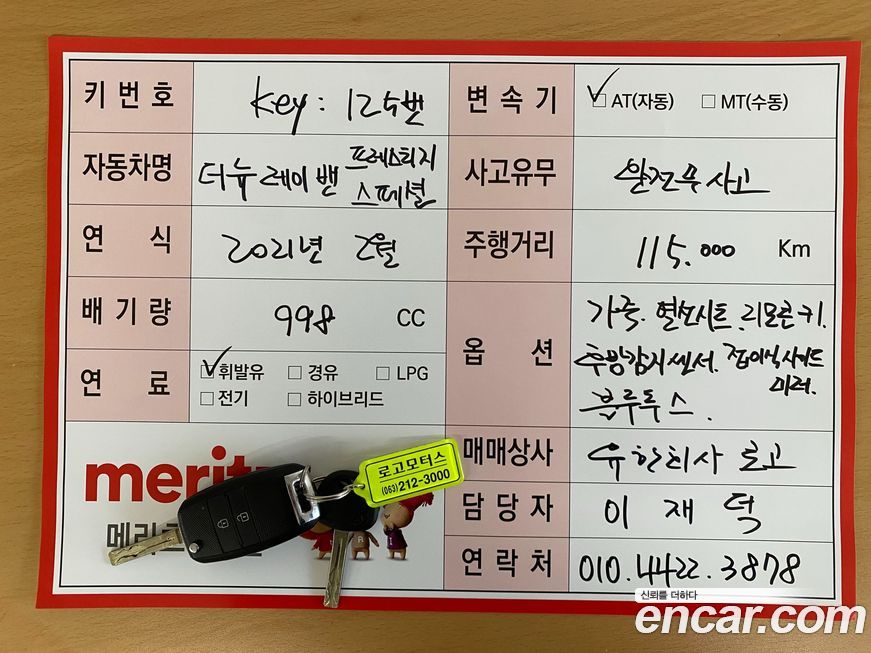 키 번 호 Key : 125번 변 속 기 ✓□ AT(자동) □ MT(수동)
자동차명 더뉴 레이 밴 프레스티지 스페셜 사고유무 완전무사고
연 식 2021년 2월 주행거리 115.000 Km
배 기 량 998 CC
옵 션 가죽. 열선시트. 리모콘키.
후방감지센서. 접이식사이드
미러.
블루투스.
연 료 ✓□ 휘발유 □ 경유 □ LPG
□ 전기 □ 하이브리드
매매상사 유한회사 로고
담 당 자 이 재 덕
연 락 처 010.4422.3878
merit
메리
로고모터스
(063)212-3000
R
신뢰를 더하다
encar.com